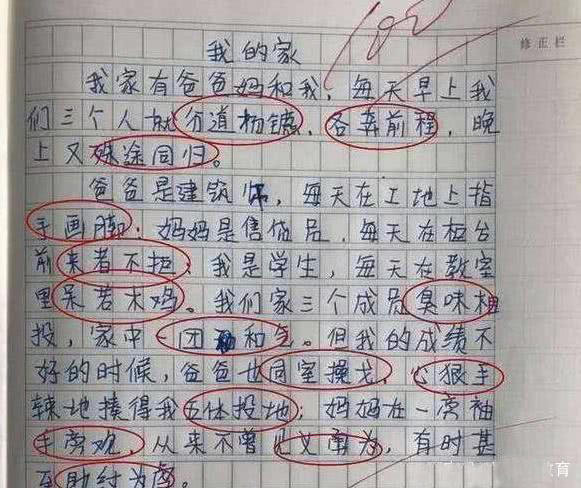 100
修正栏
我的家
我家有爸爸妈和我，每天早上我
们三个人就分道扬镳，各奔前程，晚
上又殊途同归。
爸爸是建筑师，每天在工地上指
手画脚；妈妈是售货员，每天在柜台
前来者不拒；我是学生，每天在教室
里呆若木鸡。我们家三个成员臭味相
投，家中一团和气。但我的成绩不
好的时候，爸爸也同室操戈，心狠手
辣地揍得我五体投地；妈妈在一旁袖
手旁观，从来不曾见义勇为，有时甚
至助纣为虐。
育